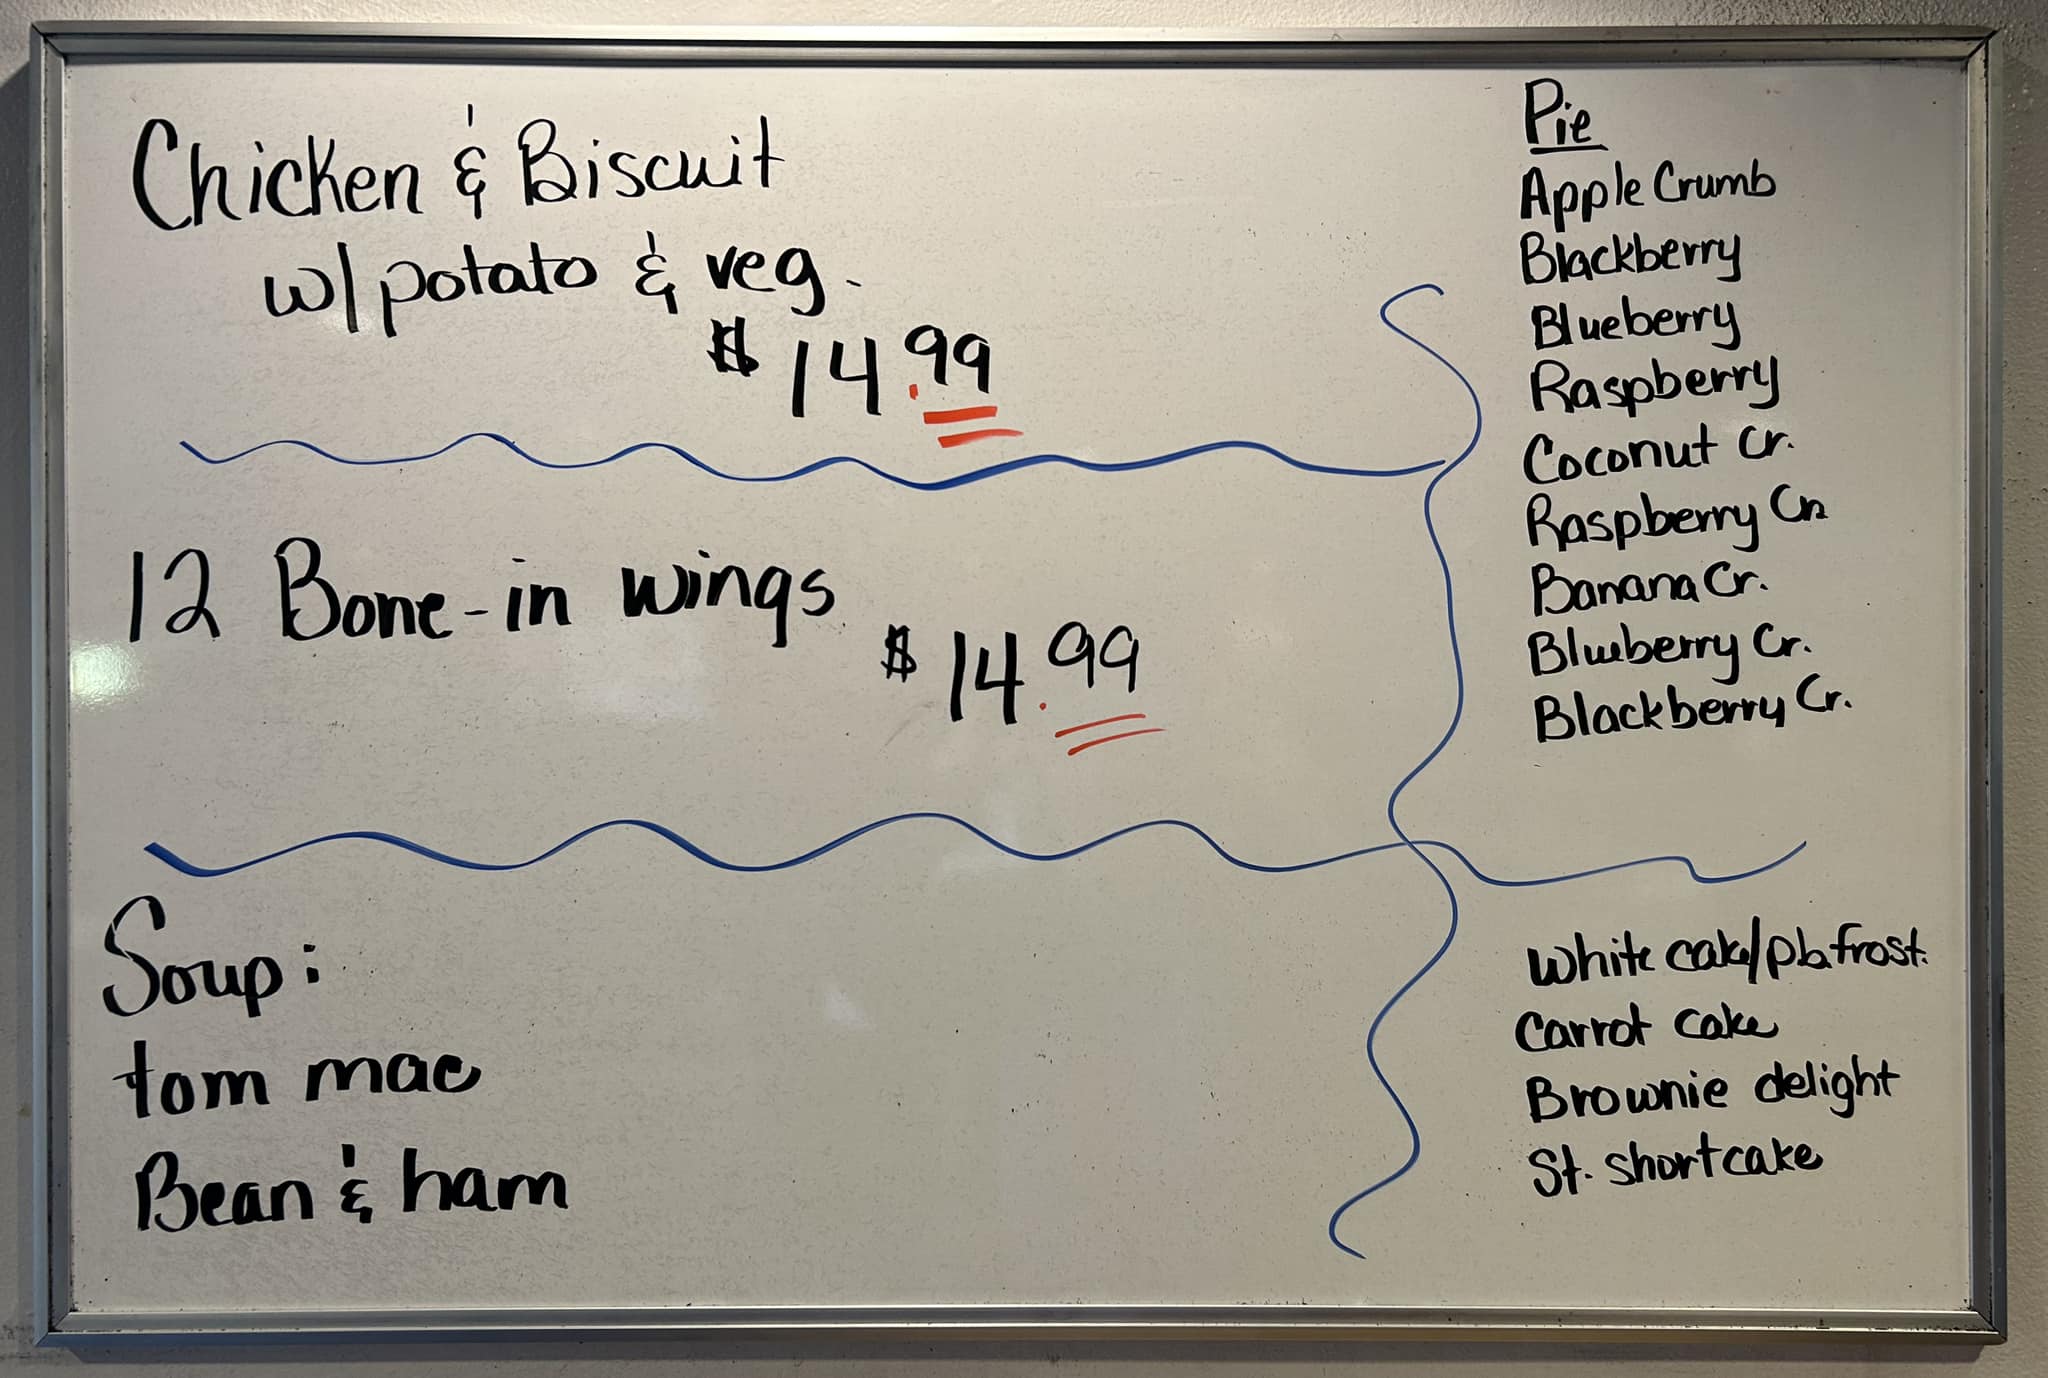 Chicken & Biscuit
w/ potato & veg.
$14.99
12 Bone-in wings
$14.99
Soup:
tom mac
Bean & ham
Pie
Apple Crumb
Blackberry
Blueberry
Raspberry
Coconut Cr.
Raspberry Cr.
Banana Cr.
Blueberry Cr.
Blackberry Cr.
White cake/pb.frost.
Carrot cake
Brownie delight
St. shortcake